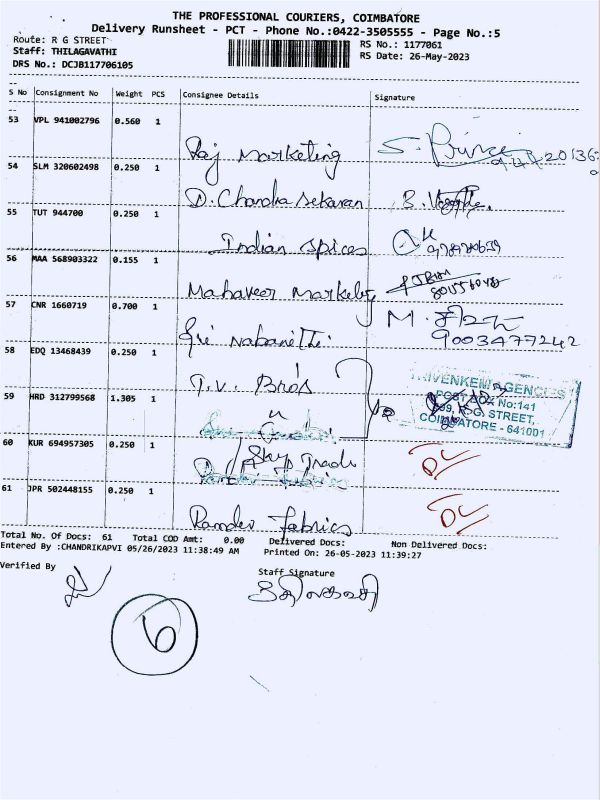 THE PROFESSIONAL COURIERS, COIMBATORE
Delivery Runsheet - PCT - Phone No.:0422-3505555 - Page No.:5
Route: R G STREET
RS No.: 1177061
Staff: THILAGAVATHI
RS Date: 26-May-2023
DRS No.: DCJB117706105
S No Consignment No Weight PCS Consignee Details Signature
53 VPL 941002796 0.560 1
Raj Marketing
54 SLM 320602498 0.250 1
D. Chandra Sekaran
55 TUT 944700 0.250 1
Indian Spices
56 MAA 568903322 0.155 1
Mahaveer Marketing
57 CNR 1660719 0.700 1
Sri Nabanithi
M.
9003477242
58 EDQ 13468439 0.250 1
T.V. Bros
59 HRD 312799568 1.305 1
TRIVENKEM AGENCIES
POST BOX No:141
R.G. STREET,
COIMBATORE - 641001
60 KUR 694957305 0.250 1
61 JPR 502448155 0.250 1
Ramdev Fabrics
Total No. Of Docs: 61 Total COD Amt: 0.00 Delivered Docs: Non Delivered Docs:
Entered By :CHANDRIKAPVI 05/26/2023 11:38:49 AM Printed On: 26-05-2023 11:39:27
Verified By
Staff Signature
திலகவதி
6